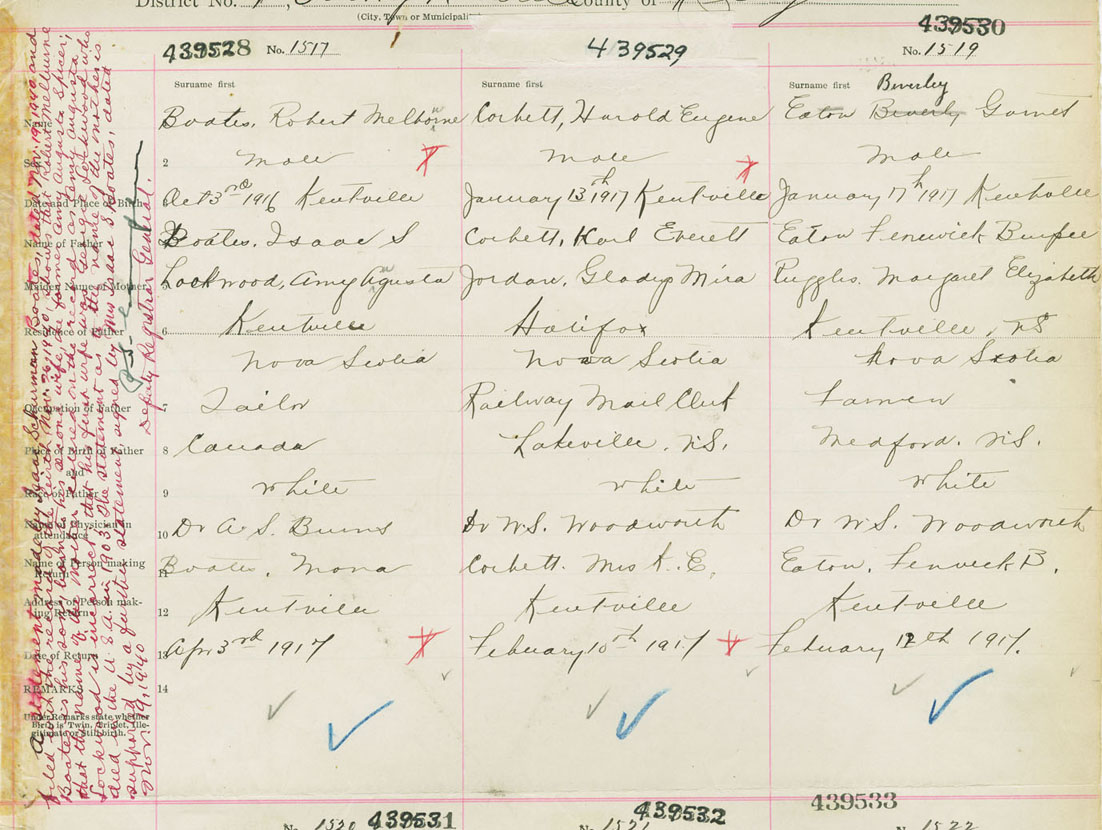 District No.
County of
(City, Town or Municipali
439528 No. 1517
439529
439530
No. 1519
Surname first
Surname first
Surname first Beverley
Name
Boates, Robert Melborne
Corbett, Harold Eugene
Eaton Beverly Garnet
2
male
male
male
Date and Place of Birth
Oct 3rd 1916 Kentville
January 13th 1917 Kentville
January 17th 1917 Kentville
Name of Father
Boates, Isaac S
Corbett, Karl Everett
Eaton Fenwick Burpee
Maiden Name of Mother
Lockwood, Amy Agusta
Jordan, Gladys Mira
Ruggles. Margaret Elizabeth
Residence of Father
6
Kentville
Halifax
Kentville, NS
Nova Scotia
Nova Scotia
Nova Scotia
Occupation of Father
7
Tailor
Railway Mail Clerk
Farmer
Place of Birth of Father
8
Canada
Lakeville, N.S.
Medford. N.S.
and
Race of Father
9
White
White
White
Name of Physician in
attendance
10
Dr A. S. Burns
Dr W.S. Woodworth
Dr W.S. Woodworth
Name of Person making
Return
11
Boates, Mona
Corbett. Mrs K. E.
Eaton, Fenwick B.
Address of Person mak-
ing Return
12
Kentville
Kentville
Kentville
Date of Return
13
Apr 3rd 1917
February 10th 1917
February 12th 1917.
REMARKS
14
Under Remarks state whether
birth is Twin, Triplet, Ille-
gitimate or Stillbirth.
A statement made by Isaac Schurman Boates, dated Nov. 19, 1940 and
filed with the record of the birth Nov. 26, 1940, shows that Robert Melbourne
Boates is his son by his second wife, the former Amy Augusta Spicer;
that the name of the mother entered on the record as Amy Augusta
Lockwood is incorrect, that his first wife was Lockwood who
died in the U.S.A. in 1903. The statement as to the name of the mother is
supported by a further statement signed by Mrs Isaac S Boates, dated
Nov. 19, 1940
Deputy Registrar General.
No. 1520 439531
1521 439532
439533
1522